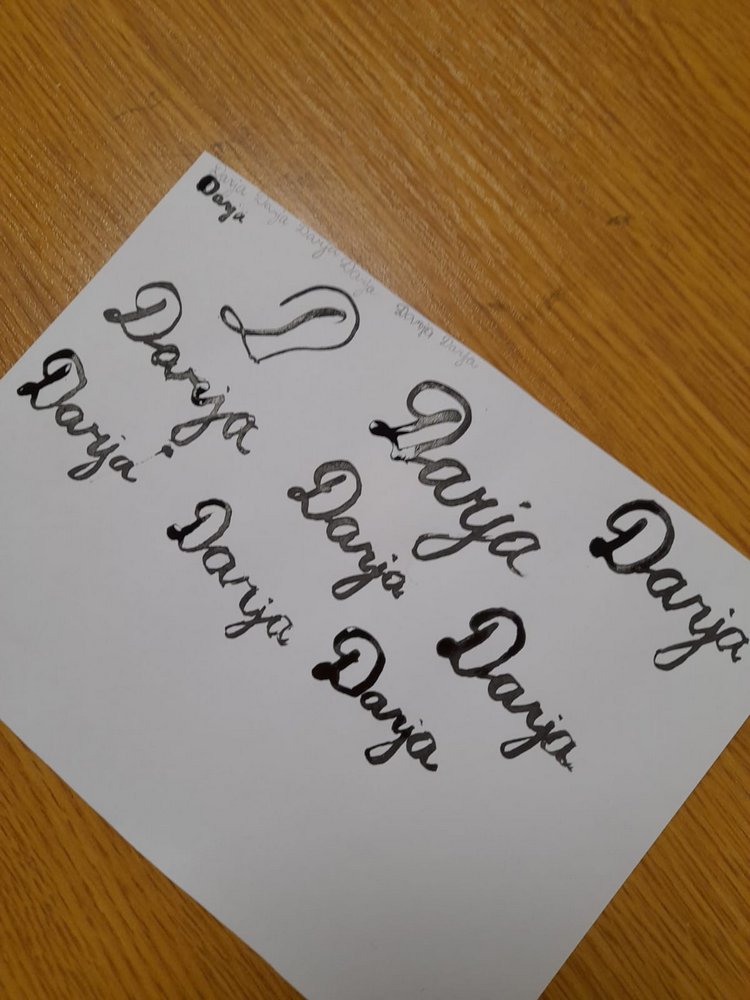 Darja Darja Darja Darja Darja Darja
Darja
D
Darja
Darja
Darja
Darja
Darja
Darja
Darja
Darja
Darja